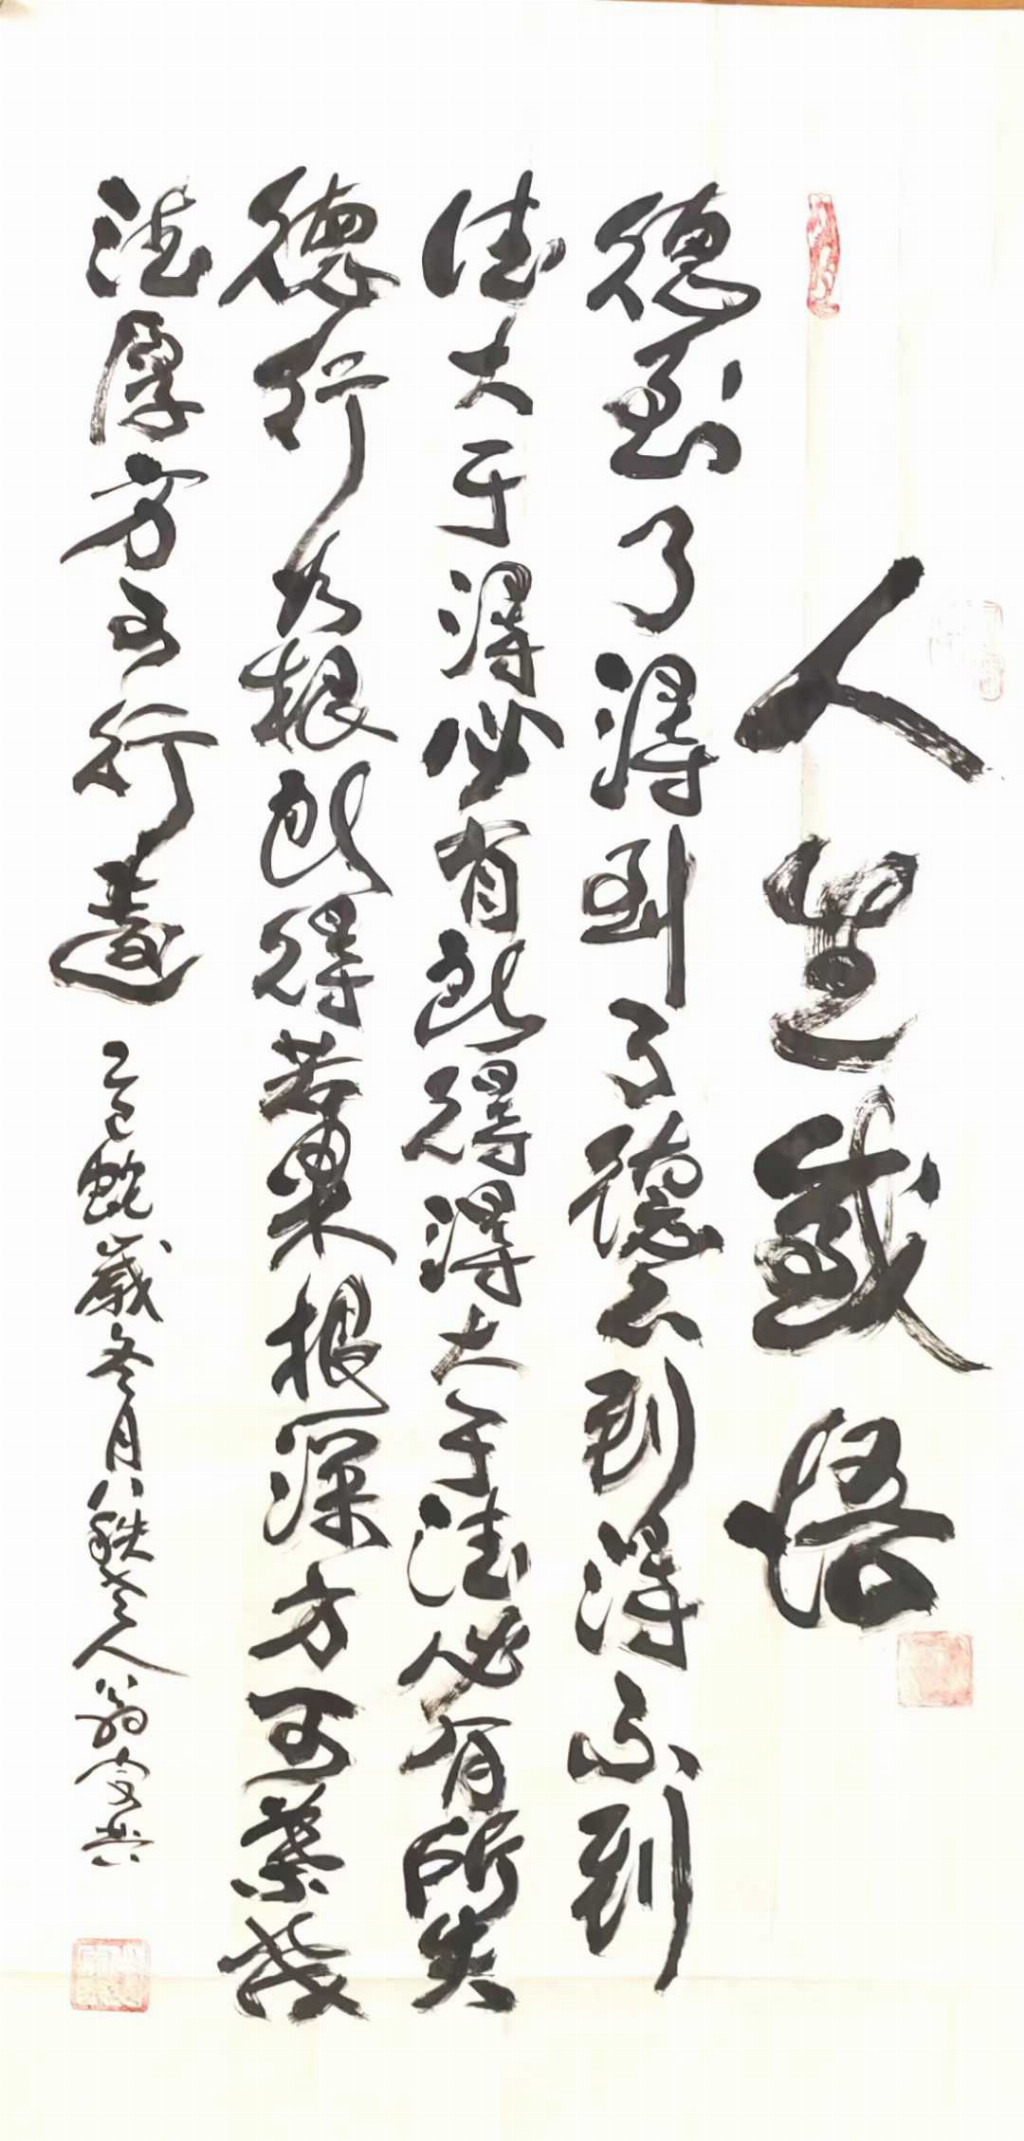 人生感悟
德到了得到了德不到得不到
德大于得必有所得得大于德必有所失
德行为根所得若果根深方可叶茂
德厚方可行远 乙巳蛇岁冬月八秩老人翁